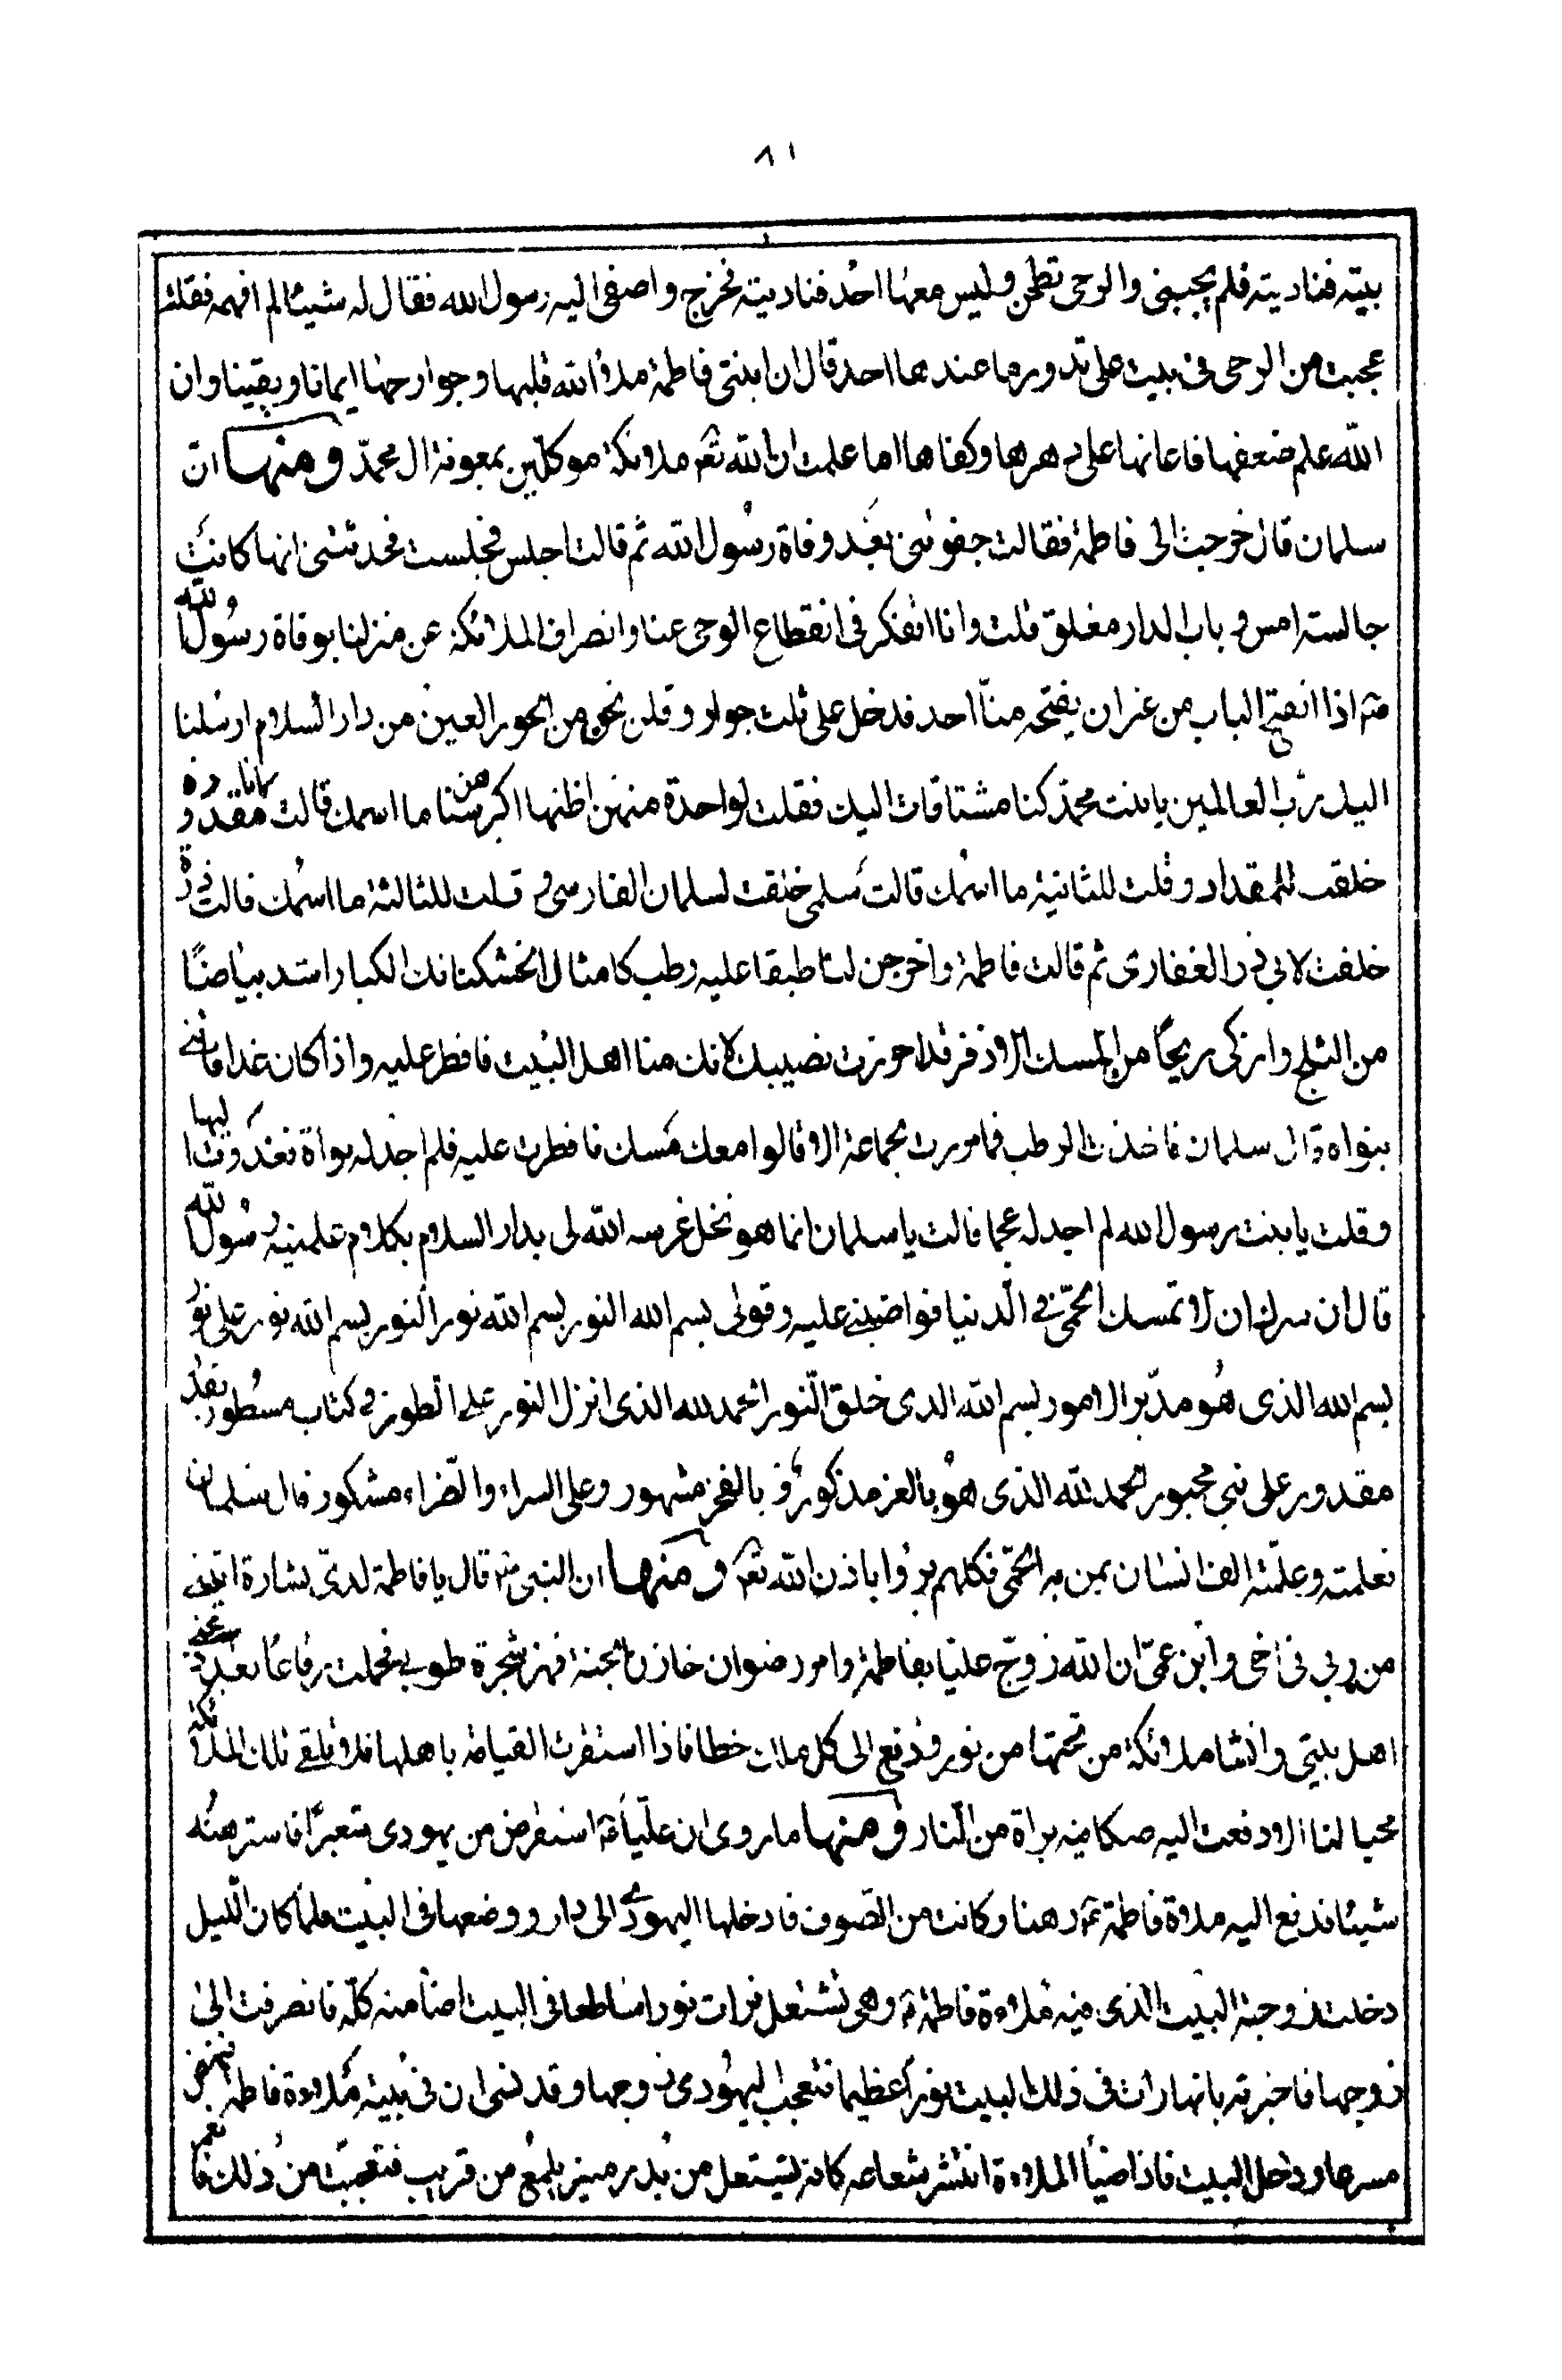 ٨١
بيته فناديته فلم يجبنى والرحى تطحن وليس معها احد فناديته فخرج واصغى اليه رسول الله فقال له شيئا لم افهمه فقلت
عجبت من الرحى فى بيت على تدور وما عندها احد قال ان ابنتى فاطمة ملاء الله قلبها وجوارحها ايمانا ويقينا وان
الله علم ضعفها فاعانها على دهرها وكفاها اما علمت ان لله تعالى ملائكة موكلين بمعونة ال محمد ومنها ان
سلمان قال خرجت الى فاطمة فقالت جفوتنى بعد وفاة رسول الله ثم قالت اجلس فجلست فحدثتنى انها كانت
جالسة امس و باب الدار مغلق قلت وانا اتفكر فى انقطاع الوحى عنا وانصراف الملائكة عن منزلنا بوفاة رسول الله
اذا انفتح الباب من غير ان يفتحه منا احد فدخل على ثلث جوار وقلن نحن من الحور العين من دار السلام ارسلنا
اليك رب العالمين يا بنت محمد كنا مشتاقات اليك فقلت لواحدة منهن اظنها اكبرهن سنا ما اسمك قالت مقدودة
خلقت للمقداد وقلت للثانية ما اسمك قالت سلمى خلقت لسلمان الفارسى و قلت للثالثة ما اسمك قالت ذرة
خلقت لابي ذر الغفارى ثم قالت فاطمة واخرجن لنا طبقا عليه رطب كامثال الخشكنانك الكبار اشد بياضا
من الثلج وازكى ريحا من المسك الاذفر فلاحوزت نصيبك لانك منا اهل البيت فافطر عليه واذا كان غدا فاتنى
بنواه قال سلمان فاخذت الرطب فما مررت بجماعة الا قالوا معك مسك فافطرت عليه فلم اجد له نواة فغدوت اليها
وقلت يا بنت رسول الله لم اجد له عجما قالت يا سلمان انما هو نخل غرسه الله لى بدار السلام بكلام علمنيه رسول الله
قال ان سرك ان لا تمسك الحمى فى الدنيا فواضبى عليه وقولى بسم الله النور بسم الله نور النور بسم الله نور على نور
بسم الله الذى هو مدبر الامور بسم الله الذى خلق النور الحمد لله الذى انزل النور على الطور فى كتاب مسطور بقدر
مقدور على نبى محبور الحمد لله الذى هو بالعز مذكور و بالفخر مشهور وعلى السراء والضراء مشكور قال سلمان
تعلمته وعلمته الف انسان ممن به الحمى فكلهم برؤا باذن الله تعالى ومنها ان النبى قال يا فاطمة لدى بشارة اتتنى
من ربي فى اخى وابن عمى ان الله زوج عليا بفاطمة وامر رضوان خازن الجنة فهز شجرة طوبى فحملت رقاعا بعدد محبى
اهل بيتى وانشا ملائكة من تحتها من نور ودفع الى كل ملك خطا فاذا استقرت القيامة باهلها فلا تلقى تلك الملائكة
محبا لنا الا دفعت اليه صكا فيه براة من النار ومنها ما روى ان عليا ع استقرض من يهودى شعيرا فاسترهنه
شيئا فدفع اليه ملاءة فاطمة رهنا وكانت من الصوف فادخلها اليهودى الى دار ووضعها فى البيت فلما كان الليل
دخلت زوجة البيت الذى فيه ملاءة فاطمة وهى تشتعل فرات نورا ساطعا فى البيت اضا منه كله فانصرفت الى
زوجها فاخبرته بانها رات فى ذلك البيت نورا عظيما فتعجب اليهودى زوجها وقد نسى ان فى بيته ملاءة فاطمة فنهض
مسرعا ودخل البيت فاذا ضياء الملاءة انتشر شعاعه كانه يشتعل من بدر منير يلمع من قريب فتعجب من ذلك فانعم